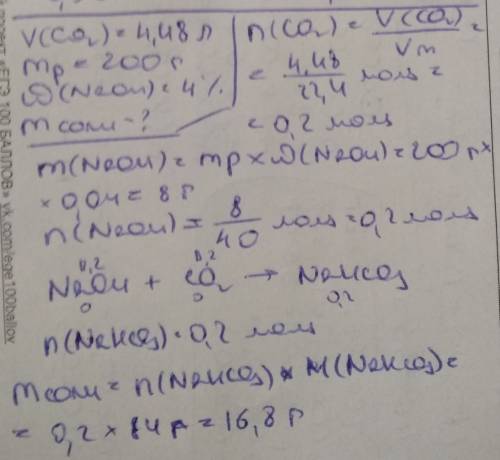 V(CO₂) = 4,48 л
mр = 200 г
ω(NaOH) = 4%
m соли - ?
n(CO₂) = V(CO₂)/Vm =
= 4,48/22,4 моль =
= 0,2 моль
m(NaOH) = mр × ω(NaOH) = 200 г ×
× 0,04 = 8 г
n(NaOH) = 8/40 моль = 0,2 моль
0,2 0,2
NaOH + CO₂ → NaHCO₃
0 0 0,2
n(NaHCO₃) = 0,2 моль
m соли = n(NaHCO₃) × M(NaHCO₃) =
= 0,2 × 84 г = 16,8 г
«ЕГЭ 100 БАЛЛОВ» vk.com/ege100ballov